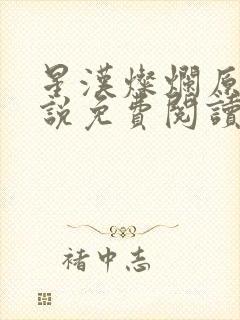 星漢燦爛原
說免費閱讀
褚中志